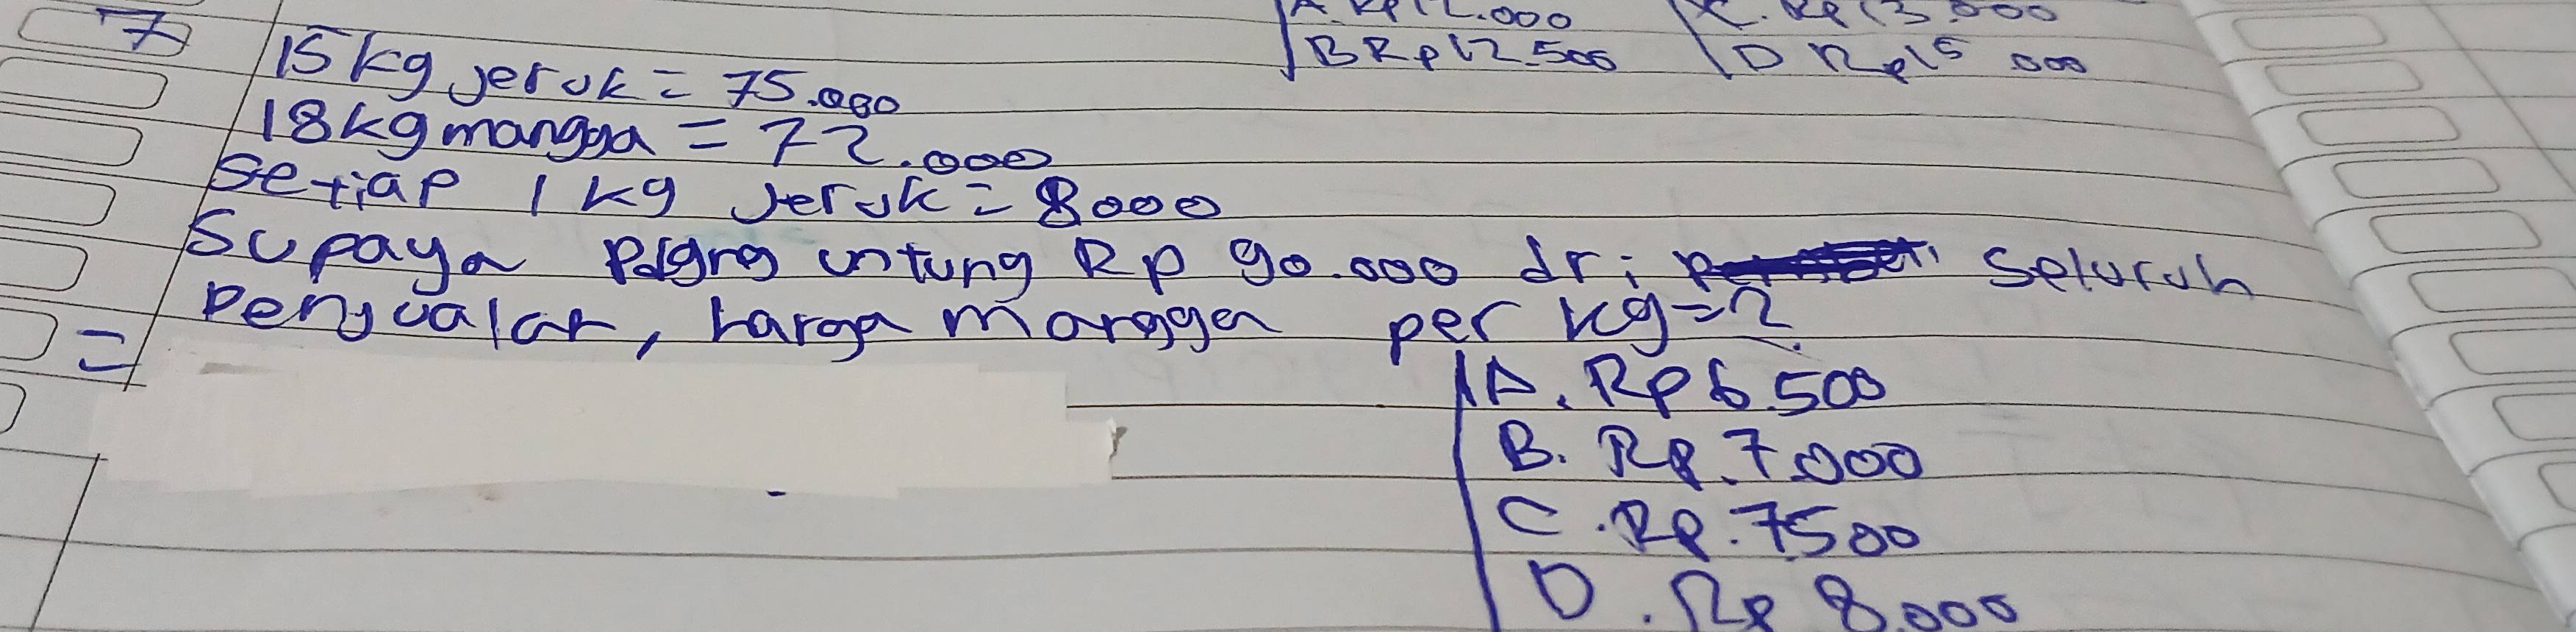 A. Rp12.000 C. Rp 13.000
B Rp12.500 D Rp15 000
7
15 kg jeruk = 75.000
18 kg mangga = 72.000
Setiap 1 kg Jeruk = 8000
Supaya untung Rp 90.000 dri seluruh
= Penjualan, harga mangga per kg = ?
A. Rp 6.500
B. Rp. 7.000
C. Rp. 7500
D. Rp 8.000